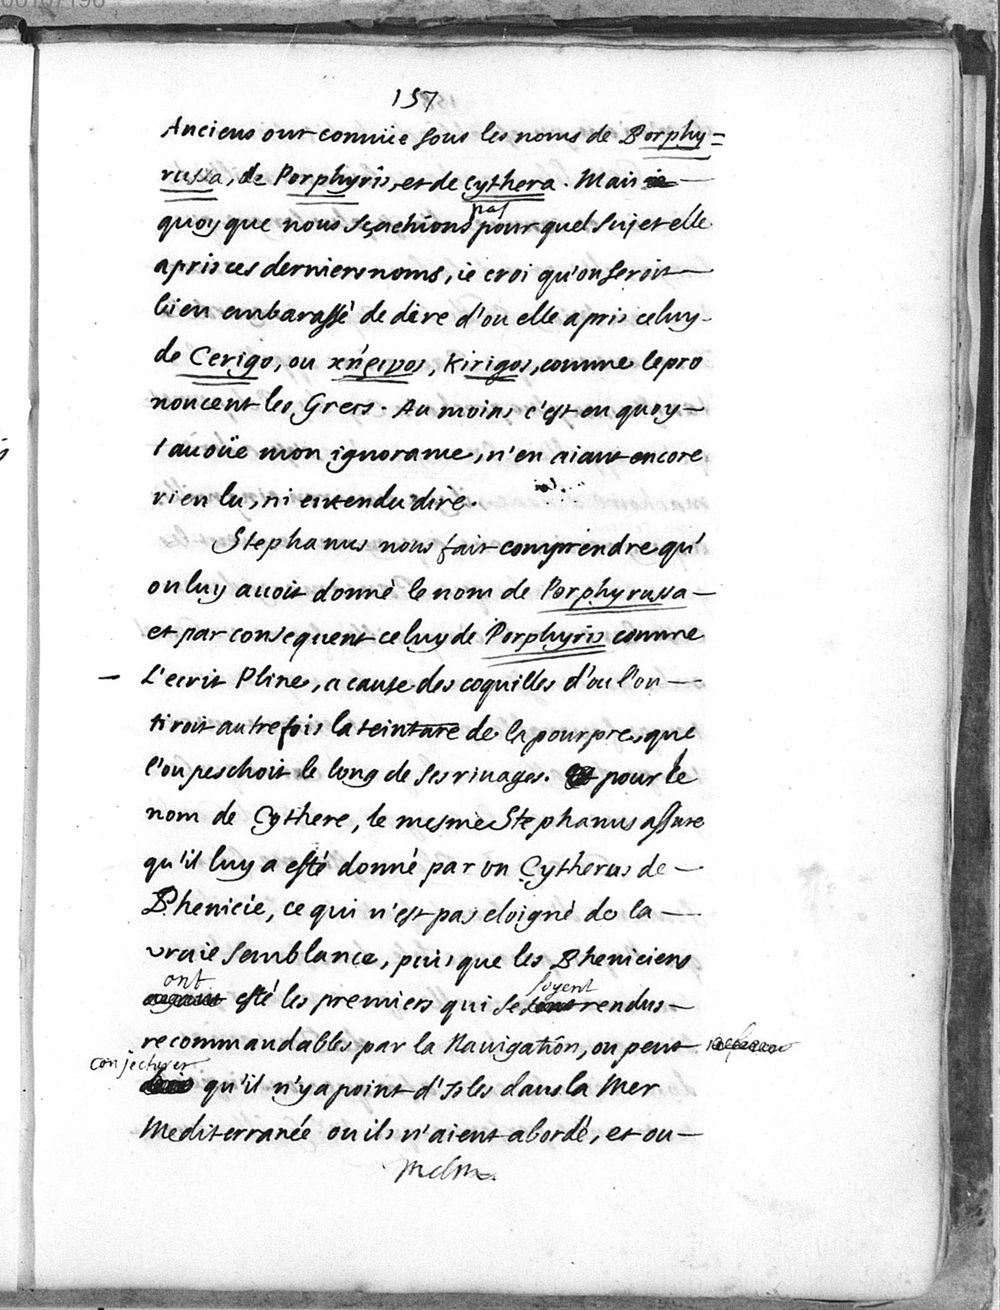 157
Anciens ont connüe sous les noms de Porphy=
russa, de Porphyris, et de Cythera. Mais
quoy que nous sçachions pas pour quel sujet elle
a pris ces derniers noms, ie croi qu'on seroit
bien embarassé de dire d'ou elle a pris celuy
de Cerigo, ou κήριγος, Kirigos, comme le pro
noncent les Grecs. Au moins c'est en quoy
I'auoüe mon ignorance, n'en aiant encore
rien lu, ni entendu dire.
Stephanus nous fait comprendre qu'
on luy auoit donné le nom de Porphyrussa
et par consequent celuy de Porphyris comme
L'ecrit Pline, a cause des coquilles d'ou l'on
tiroit autrefois la teinture de la pourpre, que
l'on peschoit le long de ses riuages. Et pour le
nom de Cythere, le mesme Stephanus assure
qu'il luy a esté donné par un Cytherus de
Phenicie, ce qui n'est pas eloigné de la
vraie semblance, puis que les Pheniciens
ont esté les premiers qui se soyent rendus
recommandables par la Nauigation, on peut
conjecturer qu'il n'y a point d'Isles dans la Mer
Mediterranée ou ils n'aient abordé, et ou